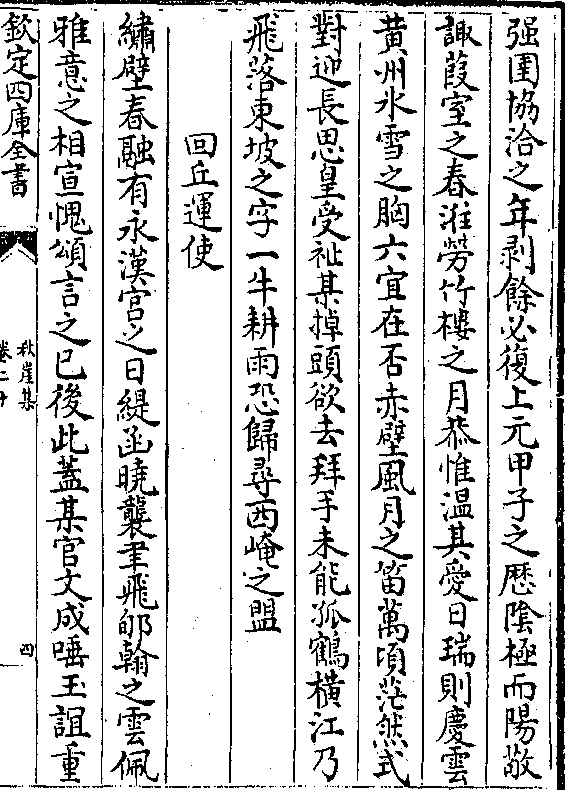 强圉協洽之年剥餘必復上元甲子之厯陰極而陽敬
諏葭室之春淮勞竹樓之月恭惟温其愛日瑞則慶雲
黄州氷雪之胸六宜在否赤壁風月之笛萬頃茫然式
對迎長思皇受祉某掉頭欲去拜手未能孤鶴横江乃
飛落東坡之字一牛耕雨恐歸尋西崦之盟
回丘運使
繡壁春融有永漢宫之日緹函曉襲聿飛郇翰之雲佩
雅意之相宣愧頌言之已後此蓋某官文成唾玉誼重
欽定四庫全書
秋崖集
卷二十
四